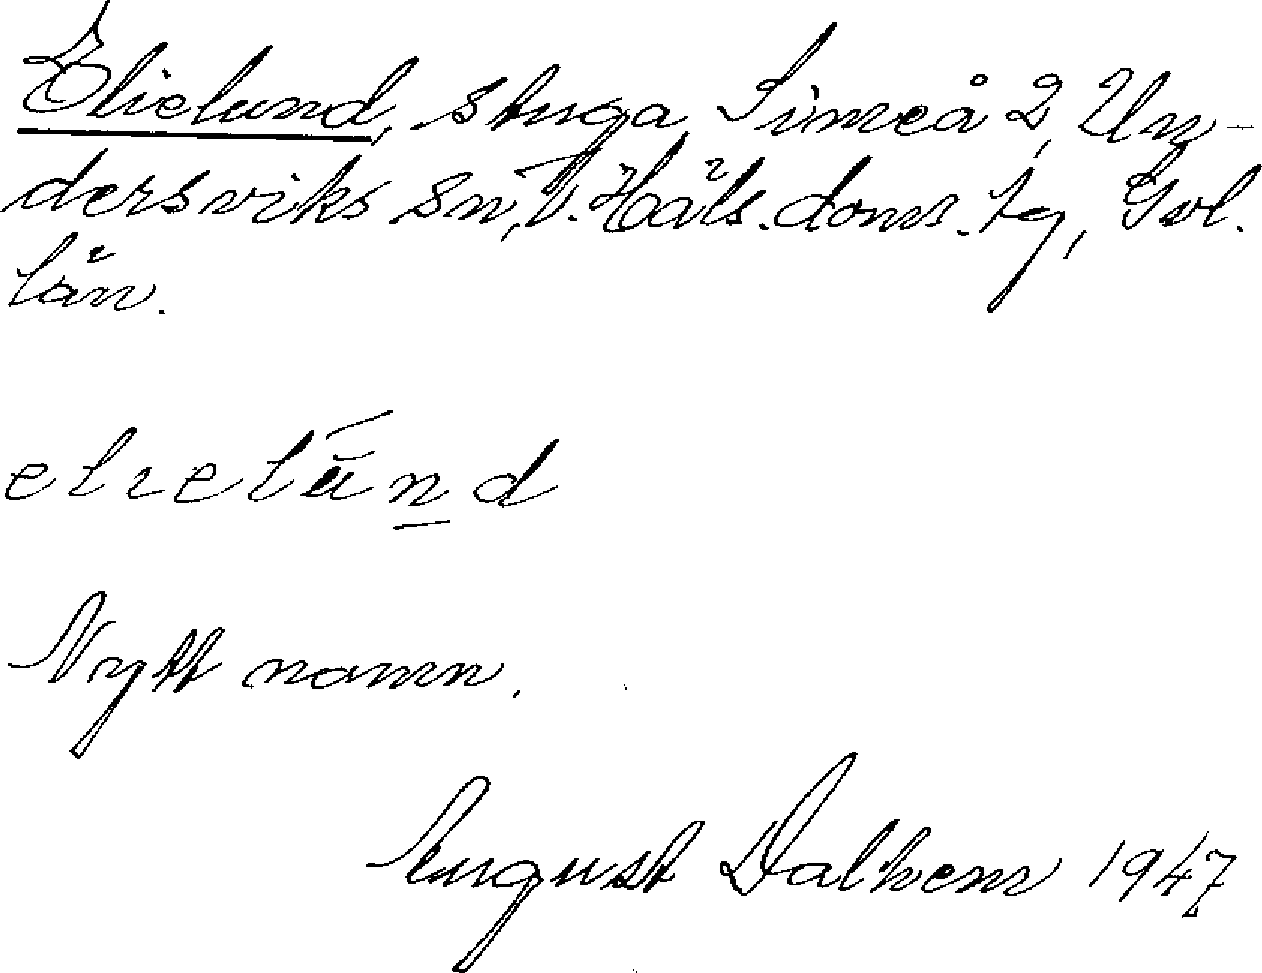 Elielund, stuga, Simeå 2, Un-
dersviks sn, V. Häls. doms. tg, Gvl.
län.
elielund
Nytt namn.
August Dalhem 1947